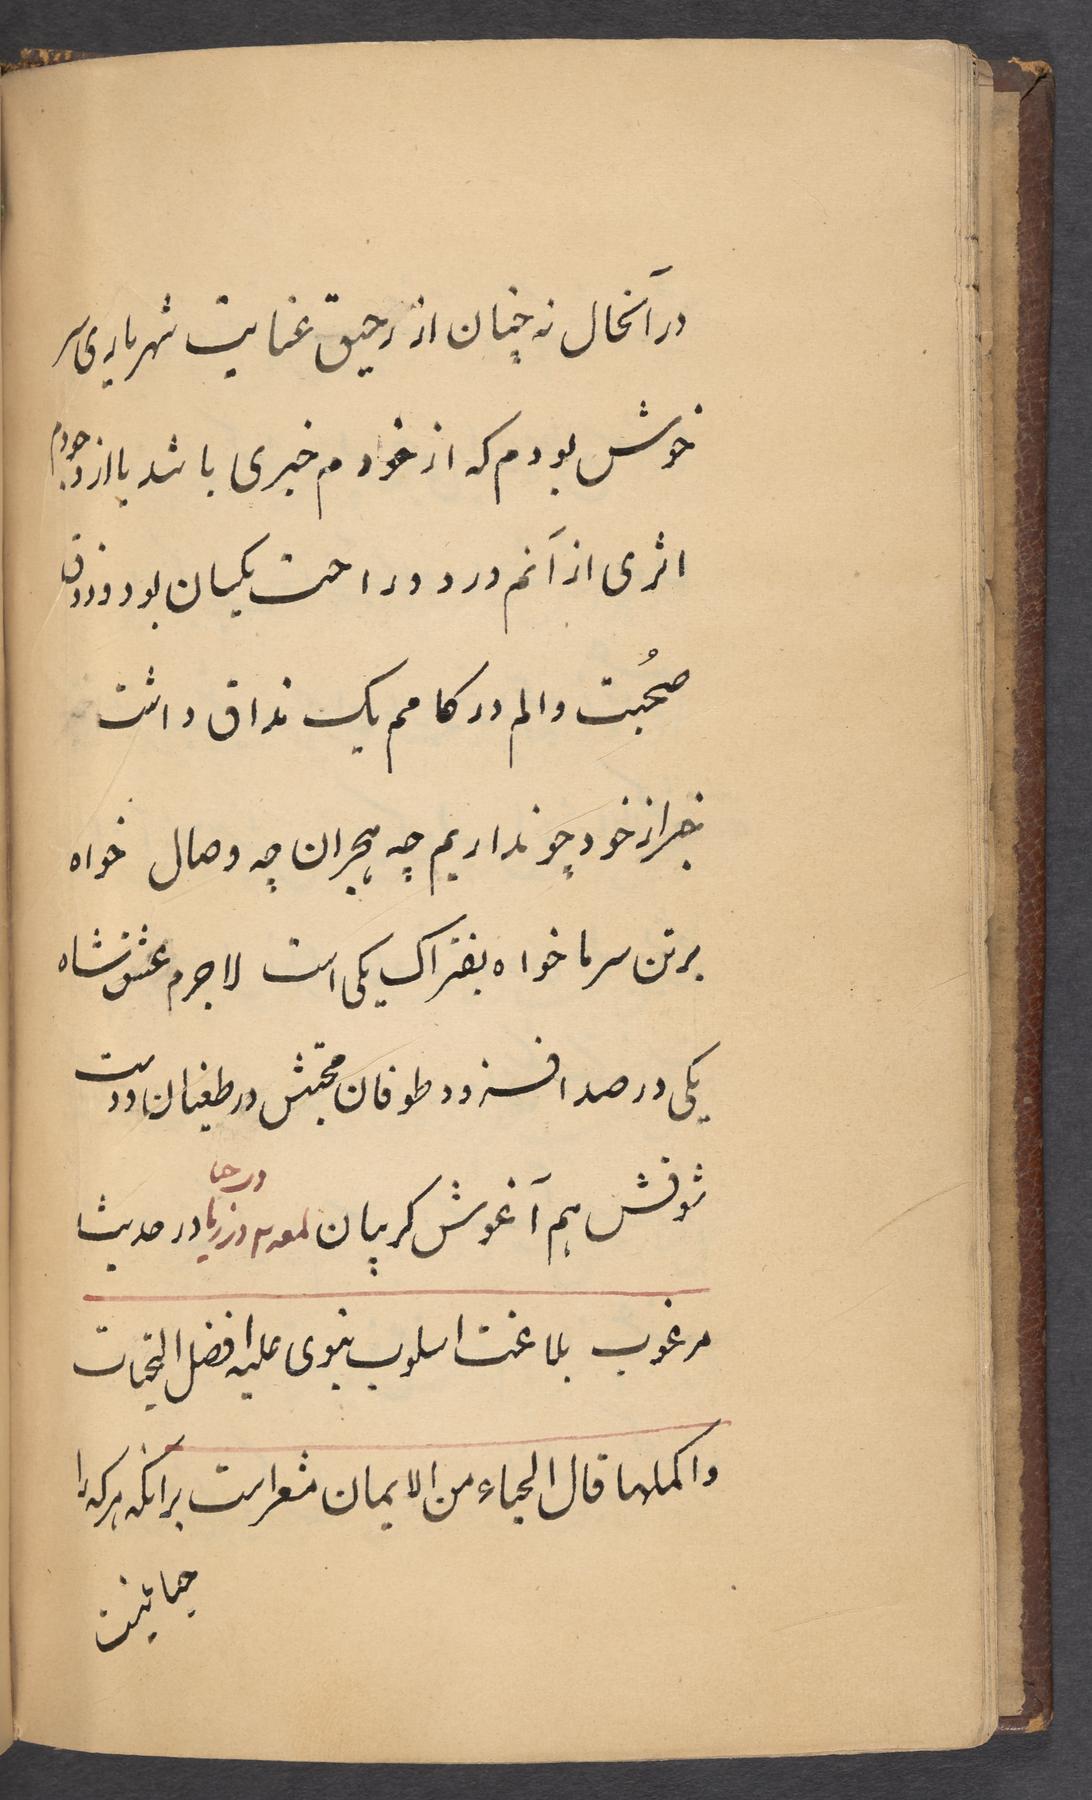 درآنحال نه چنان از رحیق عنایت شهریاری سر
خوش بودم که از خودم خبری باشد یا از وجودم
اثری از آنم درد و راحت یکسان بود و ذوق
صُحبت و الم در کامم یک مذاق داشت
خبر از خود چو نداریم چه هجران چه وصال خواه
بر تن سر ما خواه بفتراک یکی است لاجرم عشق شاه
یکی در صد افزود و طوفان محبتش در طغیان و دست
شوقش هم آغوش گریبان لمعه دوازدهم در حیا در حدیث
مرغوب بلاغت اسلوب نبوی علیه افضل التحیات
و اکملها قال الحیاء من الایمان مشعر است برآنکه هر که را
حیا نیست